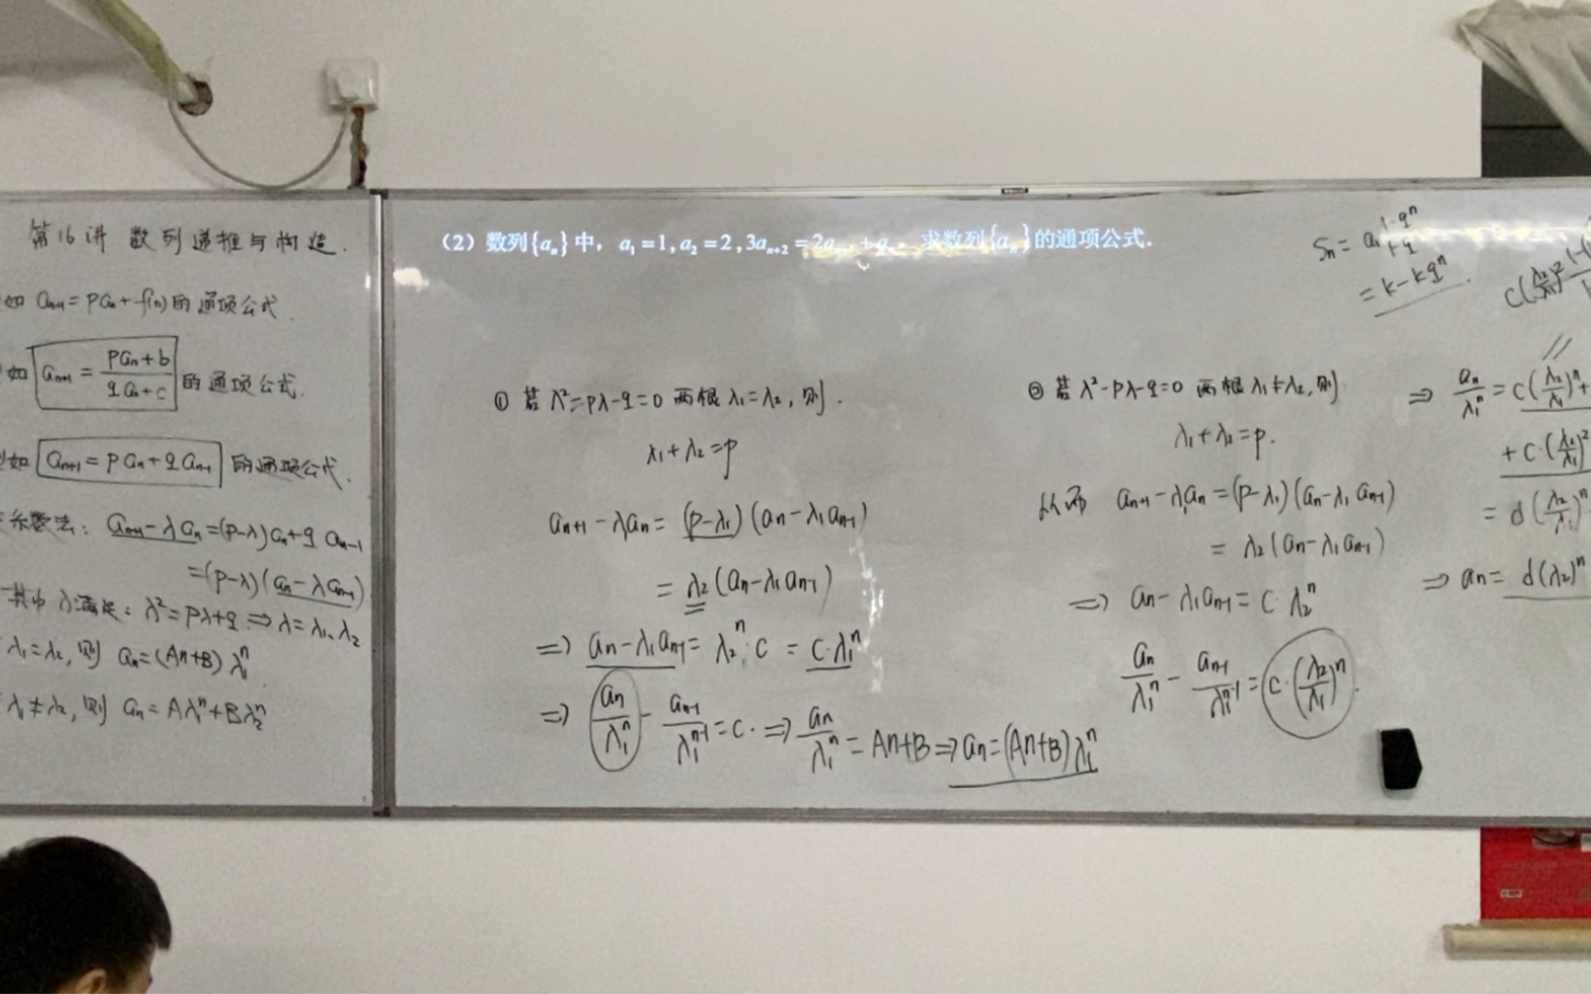 第16讲 数列递推与构造.
如 aₙ₊₁ = paₙ + f(n) 的通项公式.
如 aₙ₊₁ = (paₙ+b)/(qaₙ+c) 的通项公式.
如 aₙ₊₁ = paₙ + qaₙ₋₁ 的通项公式.
系数法: aₙ₊₁ - λaₙ = (p-λ)aₙ + q aₙ₋₁
= (p-λ)(aₙ - λaₙ₋₁)
其中 λ满足: λ² = pλ+q ⇒ λ = λ₁、λ₂
λ₁=λ₂, 则 aₙ=(An+B)λ₁ⁿ
λ₁≠λ₂, 则 aₙ = Aλ₁ⁿ+Bλ₂ⁿ
(2) 数列{aₙ}中, a₁=1, a₂=2, 3aₙ₊₂=2aₙ₊₁+aₙ, 求数列{aₙ}的通项公式.
① 若 λ²-pλ-q=0 两根 λ₁=λ₂, 则.
λ₁+λ₂=p
aₙ₊₁ - λaₙ = (p-λ₁)(aₙ-λ₁aₙ₋₁)
= λ₂(aₙ-λ₁aₙ₋₁)
⇒ aₙ-λ₁aₙ₋₁ = λ₂ⁿ·c = c·λ₁ⁿ
⇒ aₙ/λ₁ⁿ - aₙ₋₁/λ₁ⁿ⁻¹ = c. ⇒ aₙ/λ₁ⁿ = An+B ⇒ aₙ=(An+B)λ₁ⁿ
② 若 λ²-pλ-q=0 两根 λ₁≠λ₂, 则
λ₁+λ₂=p.
从而 aₙ₊₁-λ₁aₙ = (p-λ₁)(aₙ-λ₁aₙ₋₁)
= λ₂(aₙ-λ₁aₙ₋₁)
⇒ aₙ-λ₁aₙ₋₁ = c·λ₂ⁿ
aₙ/λ₁ⁿ - aₙ₋₁/λ₁ⁿ⁻¹ = c·(λ₂/λ₁)ⁿ.
Sₙ = a₁ (1-qⁿ)/(1-q)
= k-kqⁿ.
⇒ aₙ/λ₁ⁿ = c(λ₂/λ₁)ⁿ+
+c·(λ₂/λ₁)²
= d(λ₂/λ₁)ⁿ
⇒ aₙ = d(λ₂)ⁿ